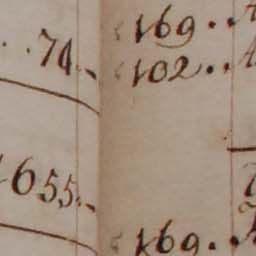 74
655
169
102
169